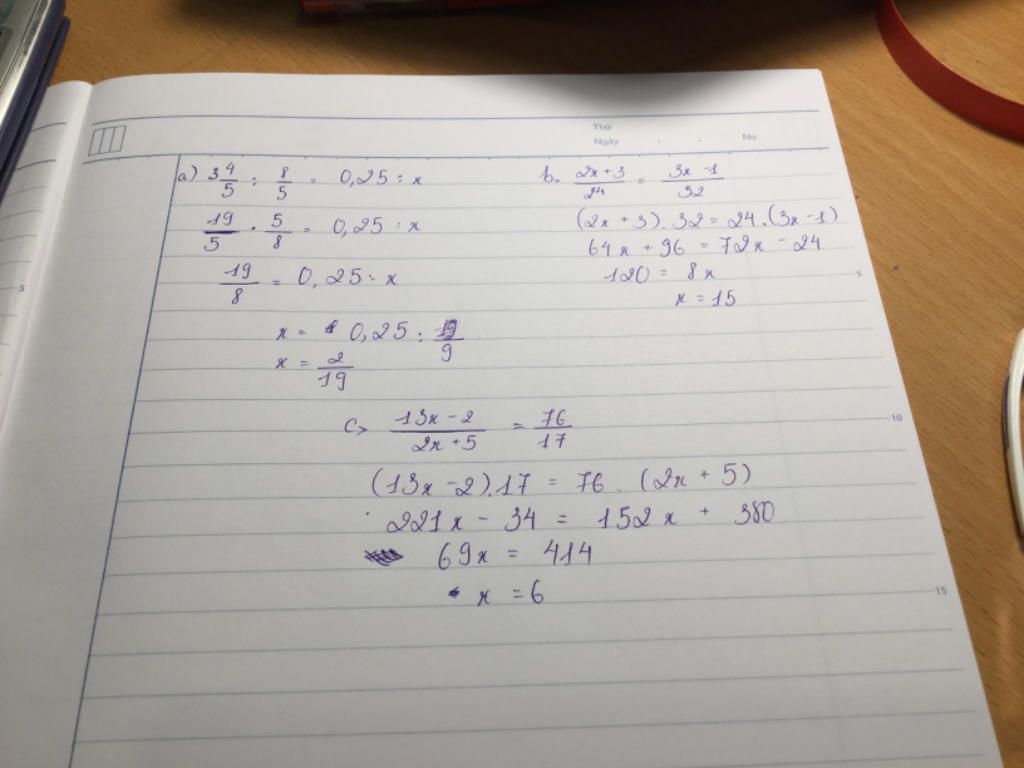 Thứ
Ngày . . No.
a) 3 4/5 : 8/5 = 0,25 : x
19/5 . 5/8 = 0,25 : x
19/8 = 0,25 : x
x = 0,25 : 19/9
x = 2/19
b, (2x + 3)/24 = (3x - 1)/32
(2x + 3).32 = 24.(3x - 1)
64x + 96 = 72x - 24
120 = 8x
x = 15
c> (13x - 2)/(2x + 5) = 76/17
(13x - 2).17 = 76 . (2x + 5)
221x - 34 = 152x + 380
69x = 414
x = 6
5
5
10
15